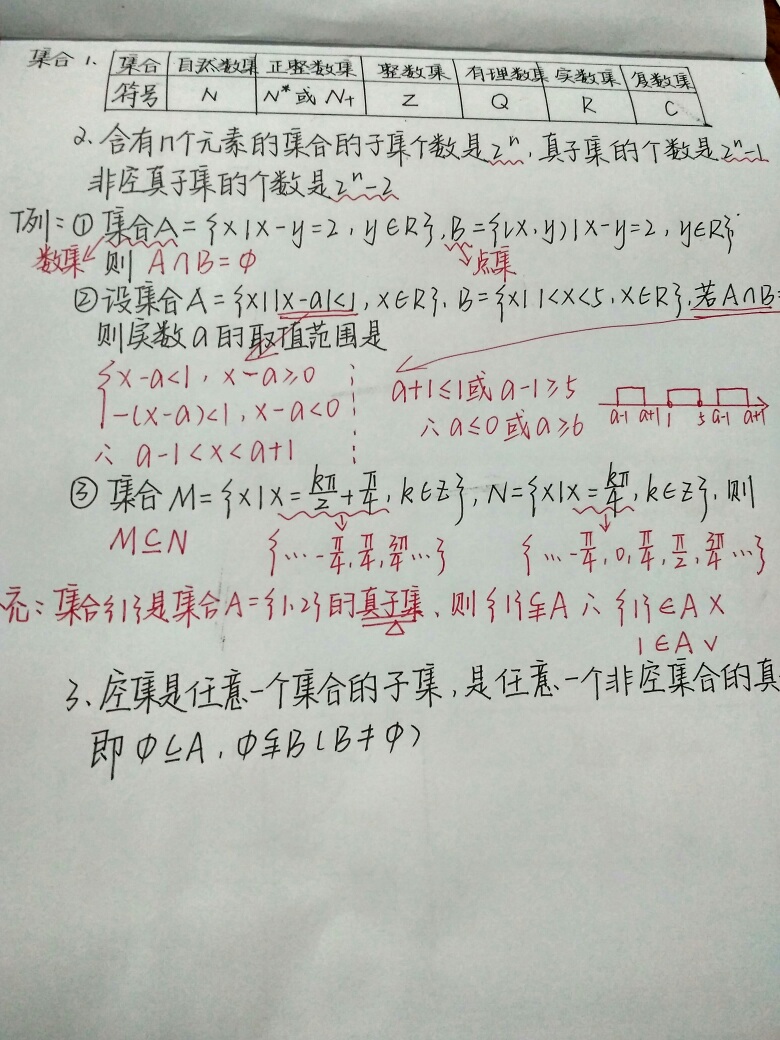 集合 1、 集合 自然数集 正整数集 整数集 有理数集 实数集 复数集
符号 N N*或 N+ Z Q R C
2、含有n个元素的集合的子集个数是2ⁿ,真子集的个数是2ⁿ-1
非空真子集的个数是2ⁿ-2
例:① 集合A={x|x-y=2,y∈R},B={(x,y)|x-y=2,y∈R}
数集 则 A∩B=Φ 点集
②设集合A={x||x-a|<1,x∈R},B={x|1<x<5,x∈R},若A∩B=
则实数a的取值范围是
{x-a<1,x-a≥0
-(x-a)<1,x-a<0
∴ a-1<x<a+1
a+1≤1或a-1≥5
∴a≤0或a≥6
a-1 a+1 1 5 a-1 a+1
③ 集合M={x|x=kπ/2+π/4,k∈Z},N={x|x=kπ/4,k∈Z},则
M⊆N {…-π/4,π/4,3π/4…} {…-π/4,0,π/4,π/2,3π/4…}
充:集合{1}是集合A={1,2}的真子集,则{1}⫋A ∴{1}∈A ×
1∈A √
3、空集是任意一个集合的子集,是任意一个非空集合的真
即Φ⊆A,Φ⫋B(B≠Φ)